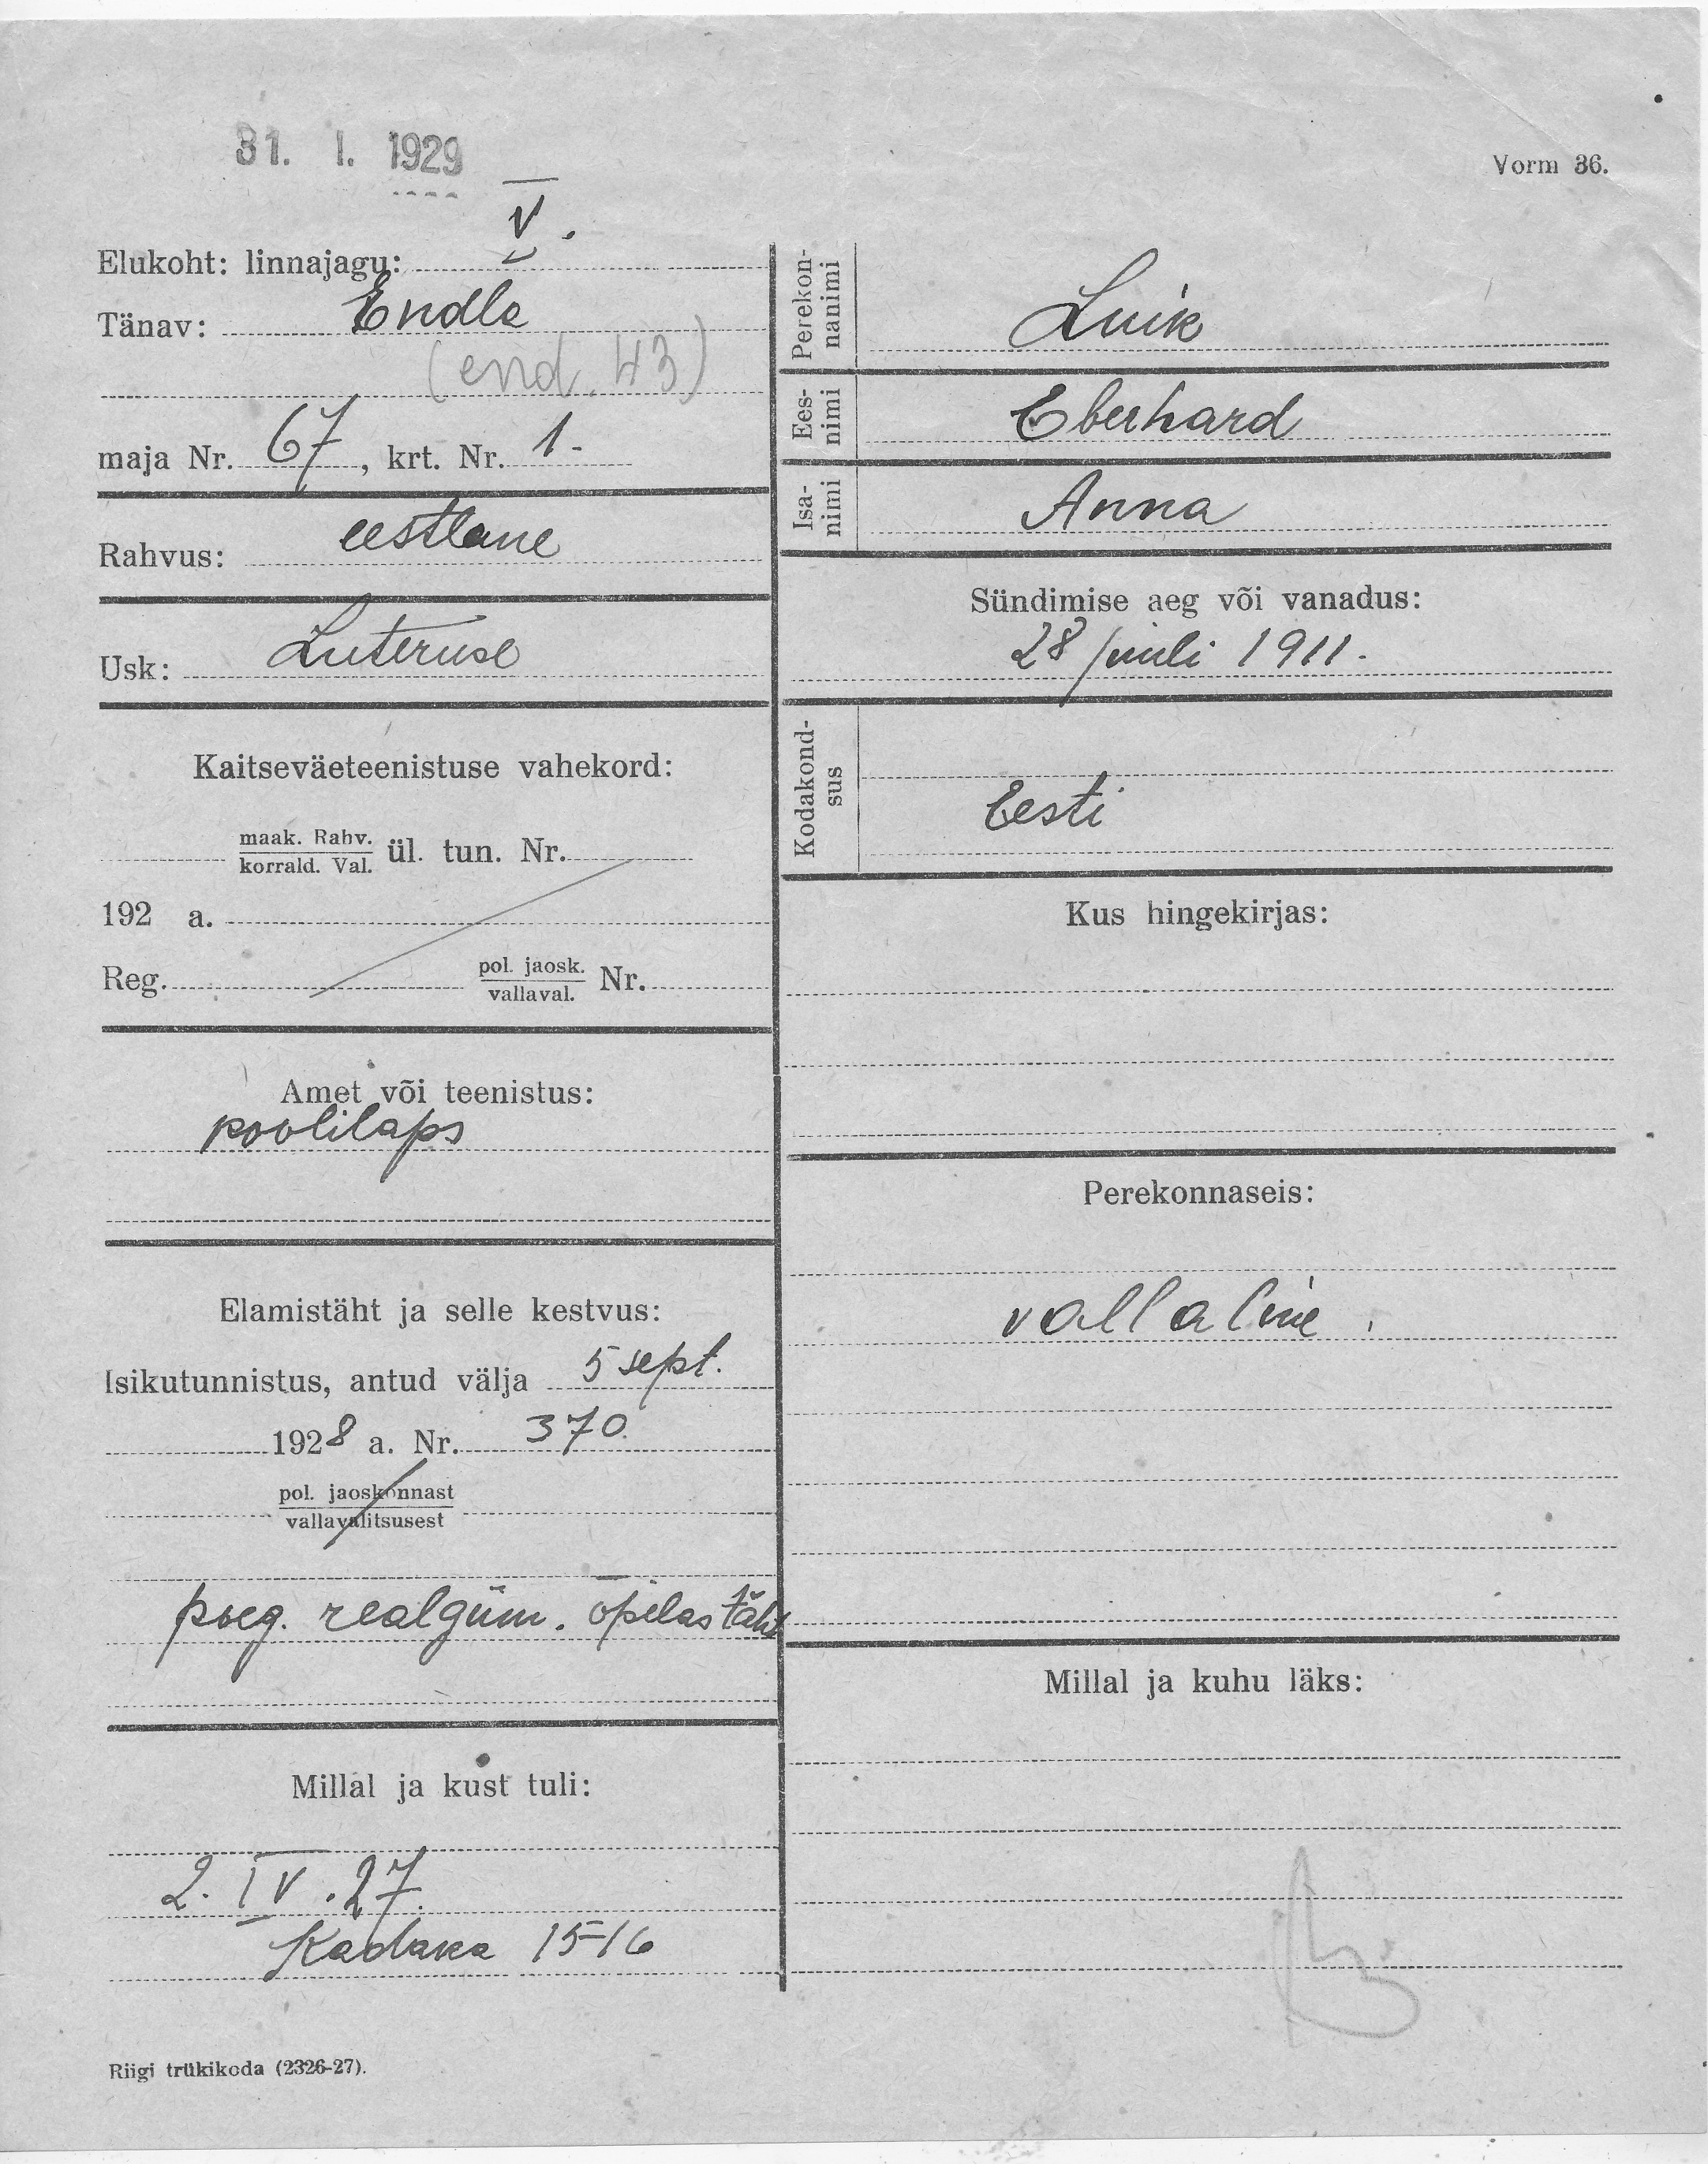 31. I. 1929
Vorm 36.
Elukoht: linnajagu: V.
Tänav: Endla
(end. 43)
maja Nr. 67, krt. Nr. 1.-
Rahvus: eestlane
Usk: Luteruse
Kaitseväeteenistuse vahekord:
maak. Rahv.
korrald. Val. ül. tun. Nr.
192 a.
Reg. pol. jaosk. Nr.
vallaval.
Amet või teenistus:
koolilaps
Elamistäht ja selle kestvus:
Isikutunnistus, antud välja 5 sept.
1928 a. Nr. 370
pol. jaoskonnast
vallavalitsusest
poeg. realgüm. õpilastäht
Millal ja kust tuli:
2. IV. 27.
Kadaka 15-16
Riigi trükikoda (2326-27).
Perekon-
nanimi Luik
Ees-
nimi Eberhard
Isa-
nimi Anna
Sündimise aeg või vanadus:
28 juuli 1911.
Kodakond-
sus
Eesti
Kus hingekirjas:
Perekonnaseis:
vallaline.
Millal ja kuhu läks: